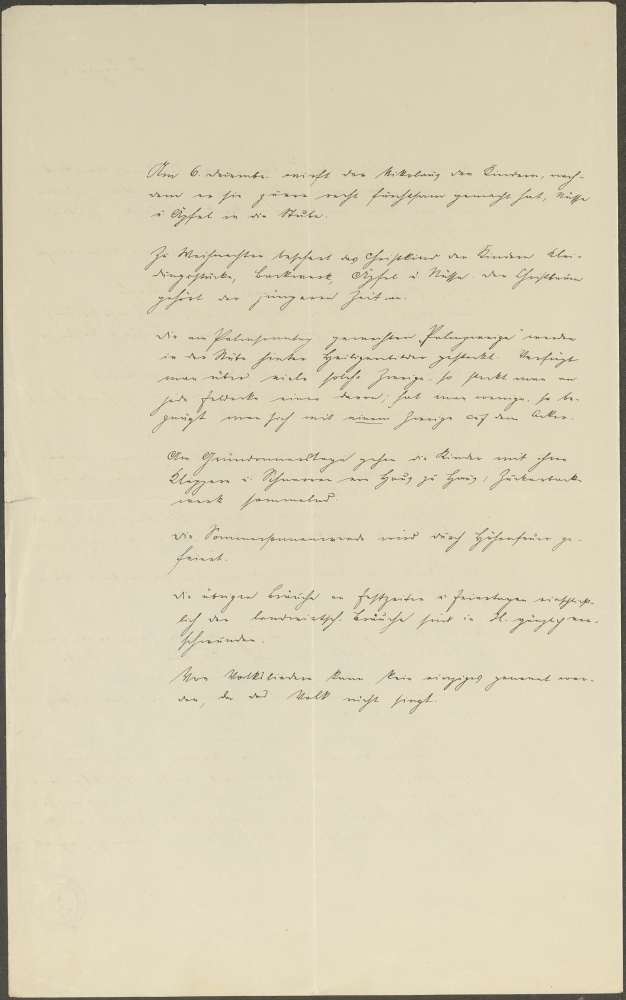 Am 6. Dezember wirft der Nikolaus den Kindern, nach-
dem er sie zuvor recht furchtsam gemacht hat, Nüsse
u. Äpfel in die Stube.
Zu Weihnachten beschert das Christkind den Kindern Klei-
dungsstücke, Backwerk, Äpfel u. Nüsse. Der Christbaum
gehört der jüngeren Zeit an.
Die am Palmsonntag geweihten „Palmzweige" werden
in der Stube hinter Heiligenbilder gesteckt. Verfügt
man über viele solche Zweige, so steckt man in
jede Feldecke einen davon; hat man wenige, so be-
gnügt man sich mit einem Zweige auf dem Acker.
Am Gründonnerstage gehen die Kinder mit ihren
Klappern u. Schnarren von Haus zu Haus, Zuckerback-
werk sammelnd.
Die Sommersonnenwende wird durch Höhenfeuer ge-
feiert.
Die übrigen Bräuche an Festzeiten u. Feiertagen einschließ-
lich der landwirtsch. Bräuche sind in gänzlich ver-
schwunden.
Von Volksliedern kann kein einziges genannt wer-
den, da das Volk nicht singt.